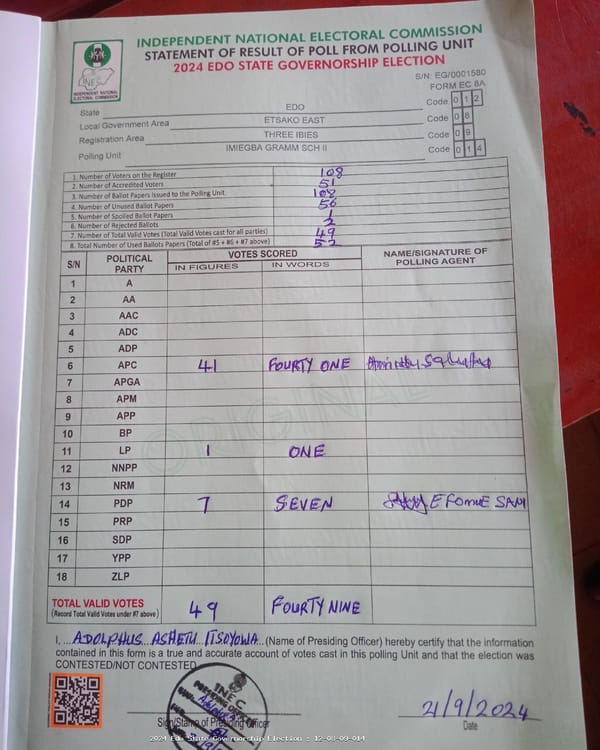 INDEPENDENT NATIONAL ELECTORAL COMMISSION
STATEMENT OF RESULT OF POLL FROM POLLING UNIT
2024 EDO STATE GOVERNORSHIP ELECTION
INDEPENDENT NATIONAL ELECTORAL COMMISSION
S/N: EG/0001580
FORM EC 8A
State EDO Code 0 1 2
Local Government Area ETSAKO EAST Code 0 8
Registration Area THREE IBIES Code 0 9
Polling Unit IMIEGBA GRAMM SCH II Code 0 1 4
1. Number of Voters on the Register 108
2. Number of Accredited Voters 51
3. Number of Ballot Papers Issued to the Polling Unit 108
4. Number of Unused Ballot Papers 56
5. Number of Spoiled Ballot Papers 1
6. Number of Rejected Ballots 2
7. Number of Total Valid Votes (Total Valid Votes cast for all parties) 49
8. Total Number of Used Ballots Papers (Total of #5 + #6 + #7 above) 52
S/N POLITICAL PARTY VOTES SCORED NAME/SIGNATURE OF POLLING AGENT
IN FIGURES IN WORDS
1 A
2 AA
3 AAC
4 ADC
5 ADP
6 APC 41 FOURTY ONE
7 APGA
8 APM
9 APP
10 BP
11 LP 1 ONE
12 NNPP
13 NRM
14 PDP 7 SEVEN SANI
15 PRP
16 SDP
17 YPP
18 ZLP
ORIGINAL
TOTAL VALID VOTES 49 FOURTY NINE
(Record Total Valid Votes under #7 above)
I, ... ADOLPHUS ... (Name of Presiding Officer) hereby certify that the information
contained in this form is a true and accurate account of votes cast in this polling Unit and that the election was
CONTESTED/NOT CONTESTED
INEC
21/9/2024
Sign/Stamp of Presiding Officer Date
2024 Edo State Governorship Election : 12-08-09-014